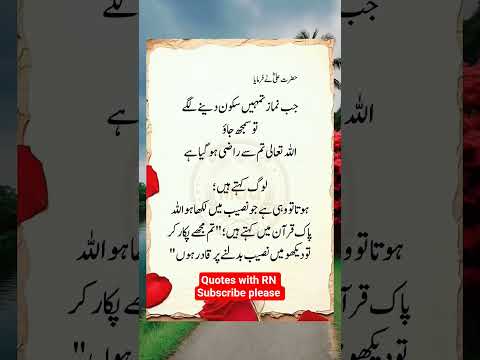 حضرت علیؓ نے فرمایا
جب نماز تمہیں سکون دینے لگے
تو سمجھ جاؤ
اللہ تعالی تم سے راضی ہو گیا ہے
لوگ کہتے ہیں؛
ہوتا تو وہی ہے جو نصیب میں لکھا ہو اللہ
پاک قرآن میں کہتے ہیں؛ "تم مجھے پکار کر
تو دیکھو میں نصیب بدلنے پر قادر ہوں"
Quotes with RN
Subscribe please